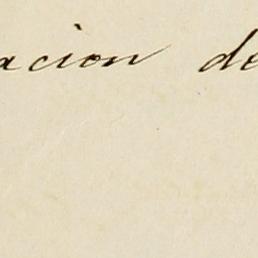 acion de